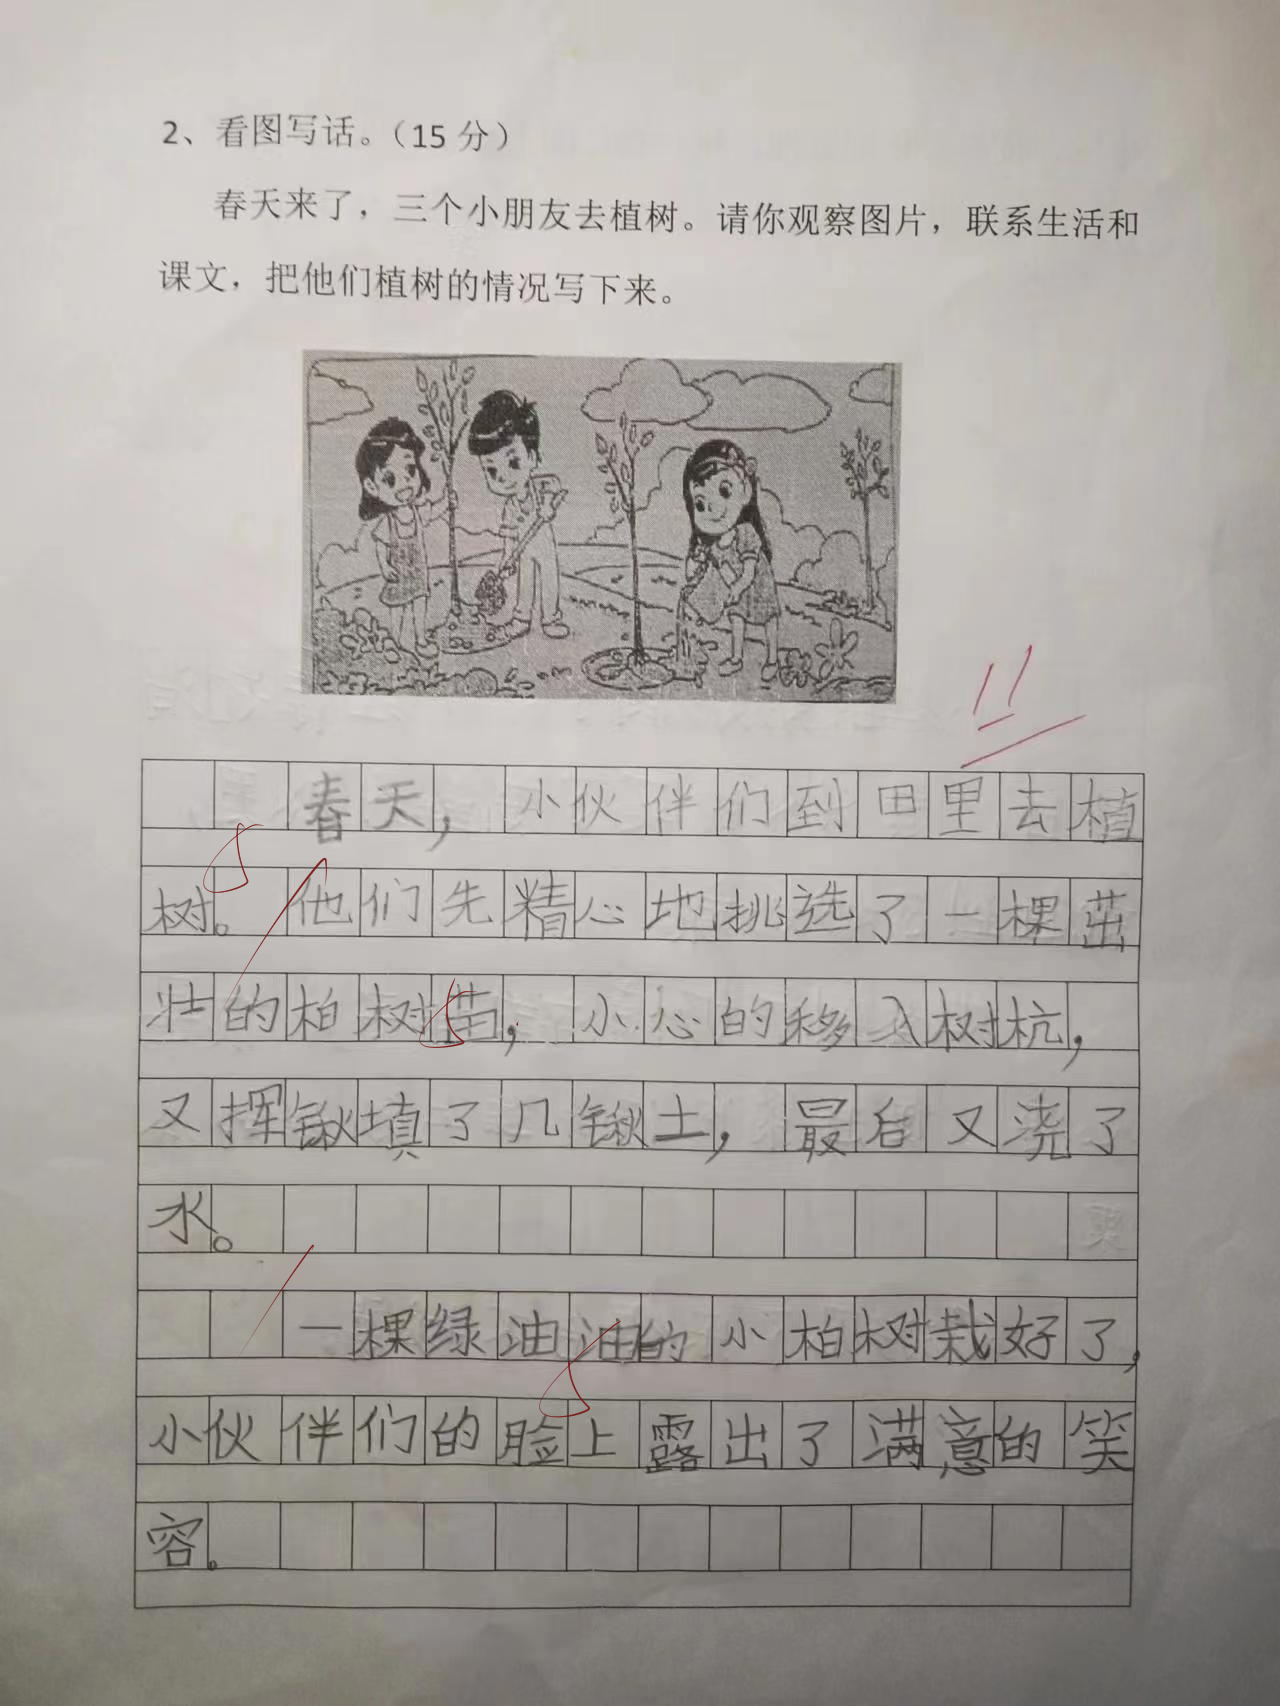 2、看图写话。（15 分）
春天来了，三个小朋友去植树。请你观察图片，联系生活和
课文，把他们植树的情况写下来。
11
春天，小伙伴们到田里去植
树。他们先精心地挑选了一棵茁
壮的柏树苗，小心的移入树杭，
又挥锹填了几锹土，最后又浇了
水。
一棵绿油油的小柏树栽好了，
小伙伴们的脸上露出了满意的笑
容。